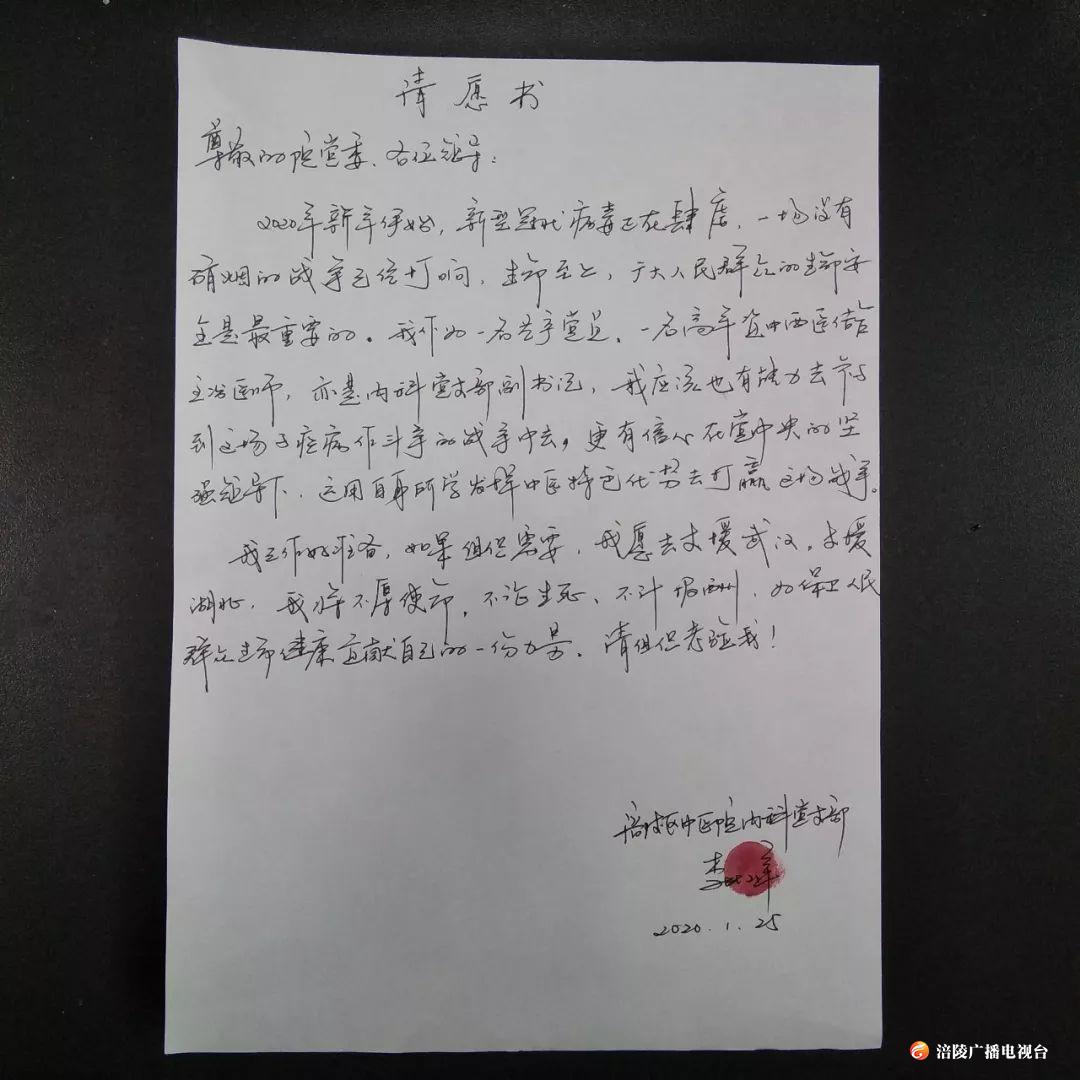 请愿书
尊敬的院党委、各位领导：
2020年新年伊始，新型冠状病毒正在肆虐，一场没有
硝烟的战争已经打响，生命至上，广大人民群众的生命安
全是最重要的。我作为一名共产党员，一名高年资中西医结合
主治医师，亦是内科党支部副书记，我应该也有能力去参与
到这场与疾病作斗争的战争中去，更有信心在党中央的坚
强领导下，运用自身所学发挥中医特色优势去打赢这场战争。
我已作好准备，如果组织需要，我愿去支援武汉，支援
湖北，我将不辱使命，不论生死、不计报酬，为保卫人民
群众生命健康贡献自己的一份力量，请组织考验我！
涪陵区中医院内科党支部
李
2020.1.25
涪陵广播电视台